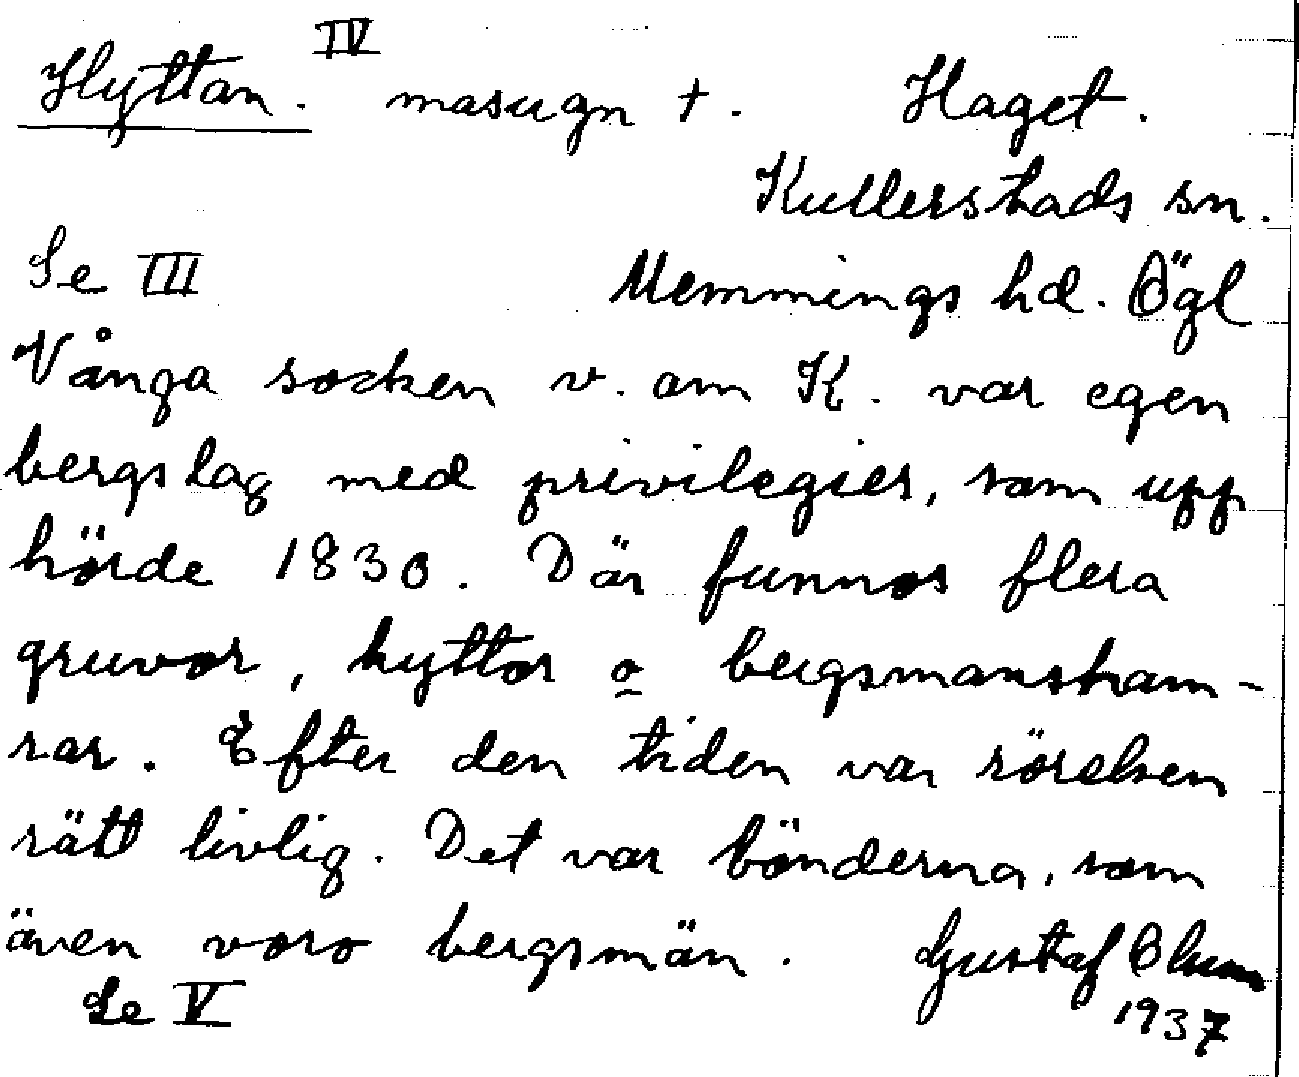 IV
Hyttan. masugn †. Haget.
Kullerstads sn.
Se III Memmings hd. Ögl
Vånga socken v. om K. var egen
bergslag med privilegier, som upp
hörde 1830. Där funnos flera
gruvor, hyttor o bergsmansham-
rar. Efter den tiden var rörelsen
rätt livlig. Det var bönderna, som
även voro bergsmän. Gustaf
Se V 1937